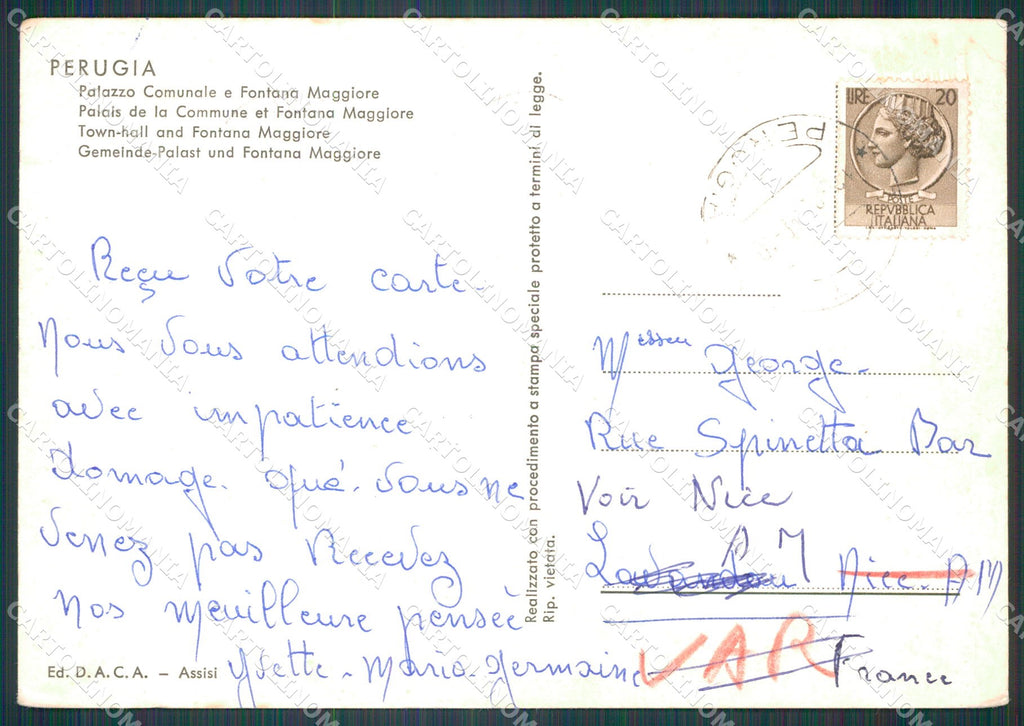 PERUGIA
Palazzo Comunale e Fontana Maggiore
Palais de la Commune et Fontana Maggiore
Town-hall and Fontana Maggiore
Gemeinde-Palast und Fontana Maggiore
Reçu Votre carte.
Nous Vous attendions
avec impatience
Domage. qué. Vous ne
Venez pas Recevez
Nos meuilleure penseè
Yvette - Maria. Germaine
Ed. D.A.C.A. – Assisi
Realizzato con procedimento a stampa speciale protetto a termini di legge.
Rip. vietata.
PERUGIA
LIRE 20
POSTE
REPVBBLICA
ITALIANA
Messeu George.
Rue Spinetta Bar
Voir Nice
A M
Nice. A M
VAR
France
CARTOLINOMANIA